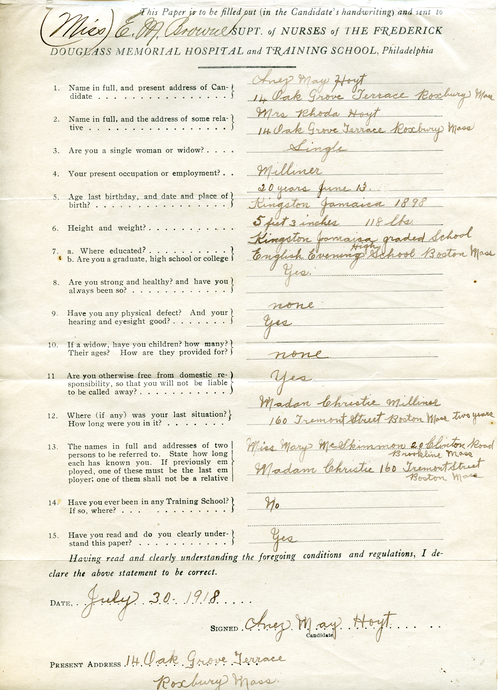 This Paper is to be filled out (in the Candidate's handwriting) and sent to
(Miss) E. M. Brown SUPT. OF NURSES OF THE FREDERICK
DOUGLASS MEMORIAL HOSPITAL AND TRAINING SCHOOL, Philadelphia
1. Name in full, and present address of Candidate
Anez May Hoyt
14 Oak Grove Terrace Roxbury Mass
2. Name in full, and the address of some relative
Mrs Rhoda Hoyt
14 Oak Grove Terrace Roxbury Mass
3. Are you a single woman or widow?
Single
4. Your present occupation or employment?
Milliner
5. Age last birthday, and date and place of birth?
20 years June 13.
Kingston Jamaica 1898
6. Height and weight?
5 feet 3 inches 118 lbs.
7. a. Where educated?
b. Are you a graduate, high school or college
Kingston Jamaica graded School
English Evening High School Boston Mass
8. Are you strong and healthy? and have you always been so?
Yes.
9. Have you any physical defect? And your hearing and eyesight good?
none
Yes
10. If a widow, have you children? how many? Their ages? How are they provided for?
none
11. Are you otherwise free from domestic responsibility, so that you will not be liable to be called away?
Yes
12. Where (if any) was your last situation? How long were you in it?
Madan Christie Milliner
160 Tremont Street Boston Mass two years
13. The names in full and addresses of two persons to be referred to. State how long each has known you. If previously employed, one of these must be the last employer; one of them shall not be a relative
Miss Mary McSkimmon 20 Clinton Road
Brookline Mass
Madam Christie 160 Tremont Street
Boston Mass
14. Have you ever been in any Training School? If so, where?
No
15. Have you read and do you clearly understand this paper?
Yes
Having read and clearly understanding the foregoing conditions and regulations, I declare the above statement to be correct.
DATE, July 30. 1918
SIGNED Anez May Hoyt
Candidate
PRESENT ADDRESS 14 Oak Grove Terrace
Roxbury Mass.